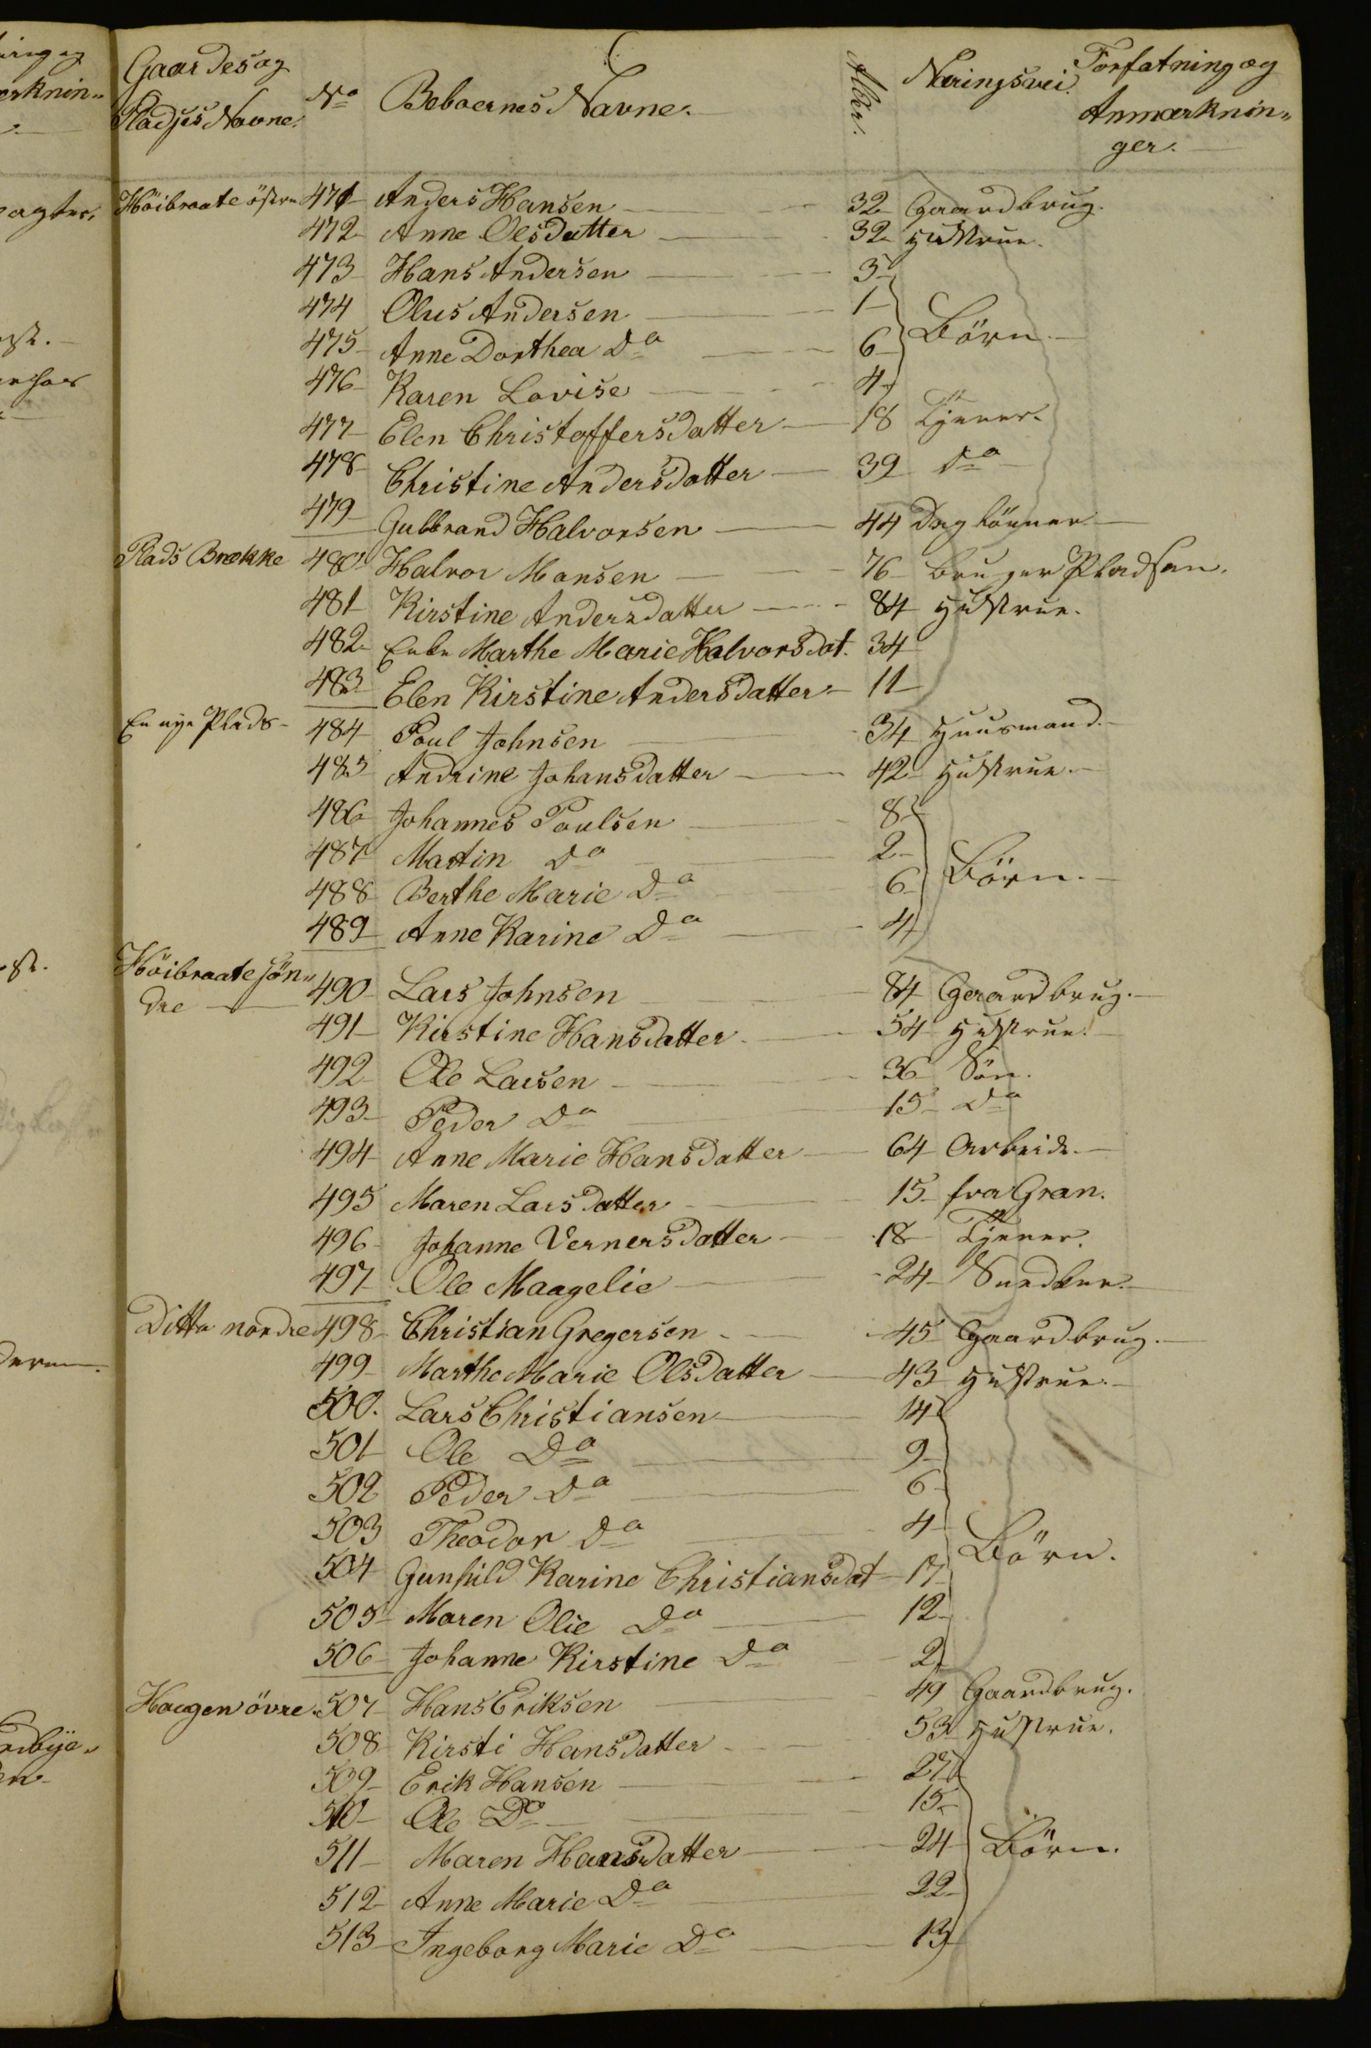 Gaardes og Pladses Navne. No Beboernes Navne. Alder. Næringsvei. Forfatning og Anmærkninger.
Höibraate östre 471 Anders Hansen 32 Gaardbrug.
472 Anne Olsdatter 32 Hustrue.
473 Hans Andersen 5
474 Olus Andersen 1
475 Anne Dorthea Do 6 Börn.
476 Karen Lovise 4
477 Elen Christoffersdatter 18 Tjener.
478 Christine Andersdatter 39 do
479 Gulbrand Halvorsen 44 Daglönner
Plads Brække 480 Halvor Monsen 76 bruger Pladsen.
481 Kirstine Andersdatter 84 Hustrue.
482 Enke Marthe Marie Halvorsdat. 34
483 Elen Kirstine Andersdatter 11
En nye Plads 484 Poul Johnsen 34 Huusmand.
485 Andrine Johansdatter 42 Hustrue.
486 Johannes Poulsen 8
487 Martin Do 2
488 Berthe Marie Do 6 Börn.
489 Anne Karine Do 4
Höibraate Sön„
dre 490 Lars Johnsen 84 Gaardbrug.
491 Kirstine Hansdatter 54 Hustrue.
492 Ole Larsen 36 Sön.
493 Peder Do 15 do
494 Anne Marie Hansdatter 64 Arbeide.
495 Maren Larsdatter 15 fra Gran.
496 Johanne Vernersdatter 18 Tjener.
497 Ole Maagelie 24 Snedker.
Ditto nordre 498 Christian Gregersen 45 Gaardbrug.
499 Marthe Marie Olsdatter 43 Hustrue.
500. Lars Christiansen 14
501 Ole Do 9
502 Peder Do 6
503 Theodor Do 4 Börn.
504 Gunhild Karine Christiansdat 17
505 Maren Olie Do 12
506 Johanne Kirstine Do 2
Haugen övre. 507 Hans Eriksen 49 Gaardbrug.
508 Kirsti Hansdatter 53 Hustrue.
509 Erik Hansen 27
510 Ole Do 15
511 Maren Hansdatter 24 Börn.
512 Anne Marie Do 22
513 Ingeborg Marie Do 13